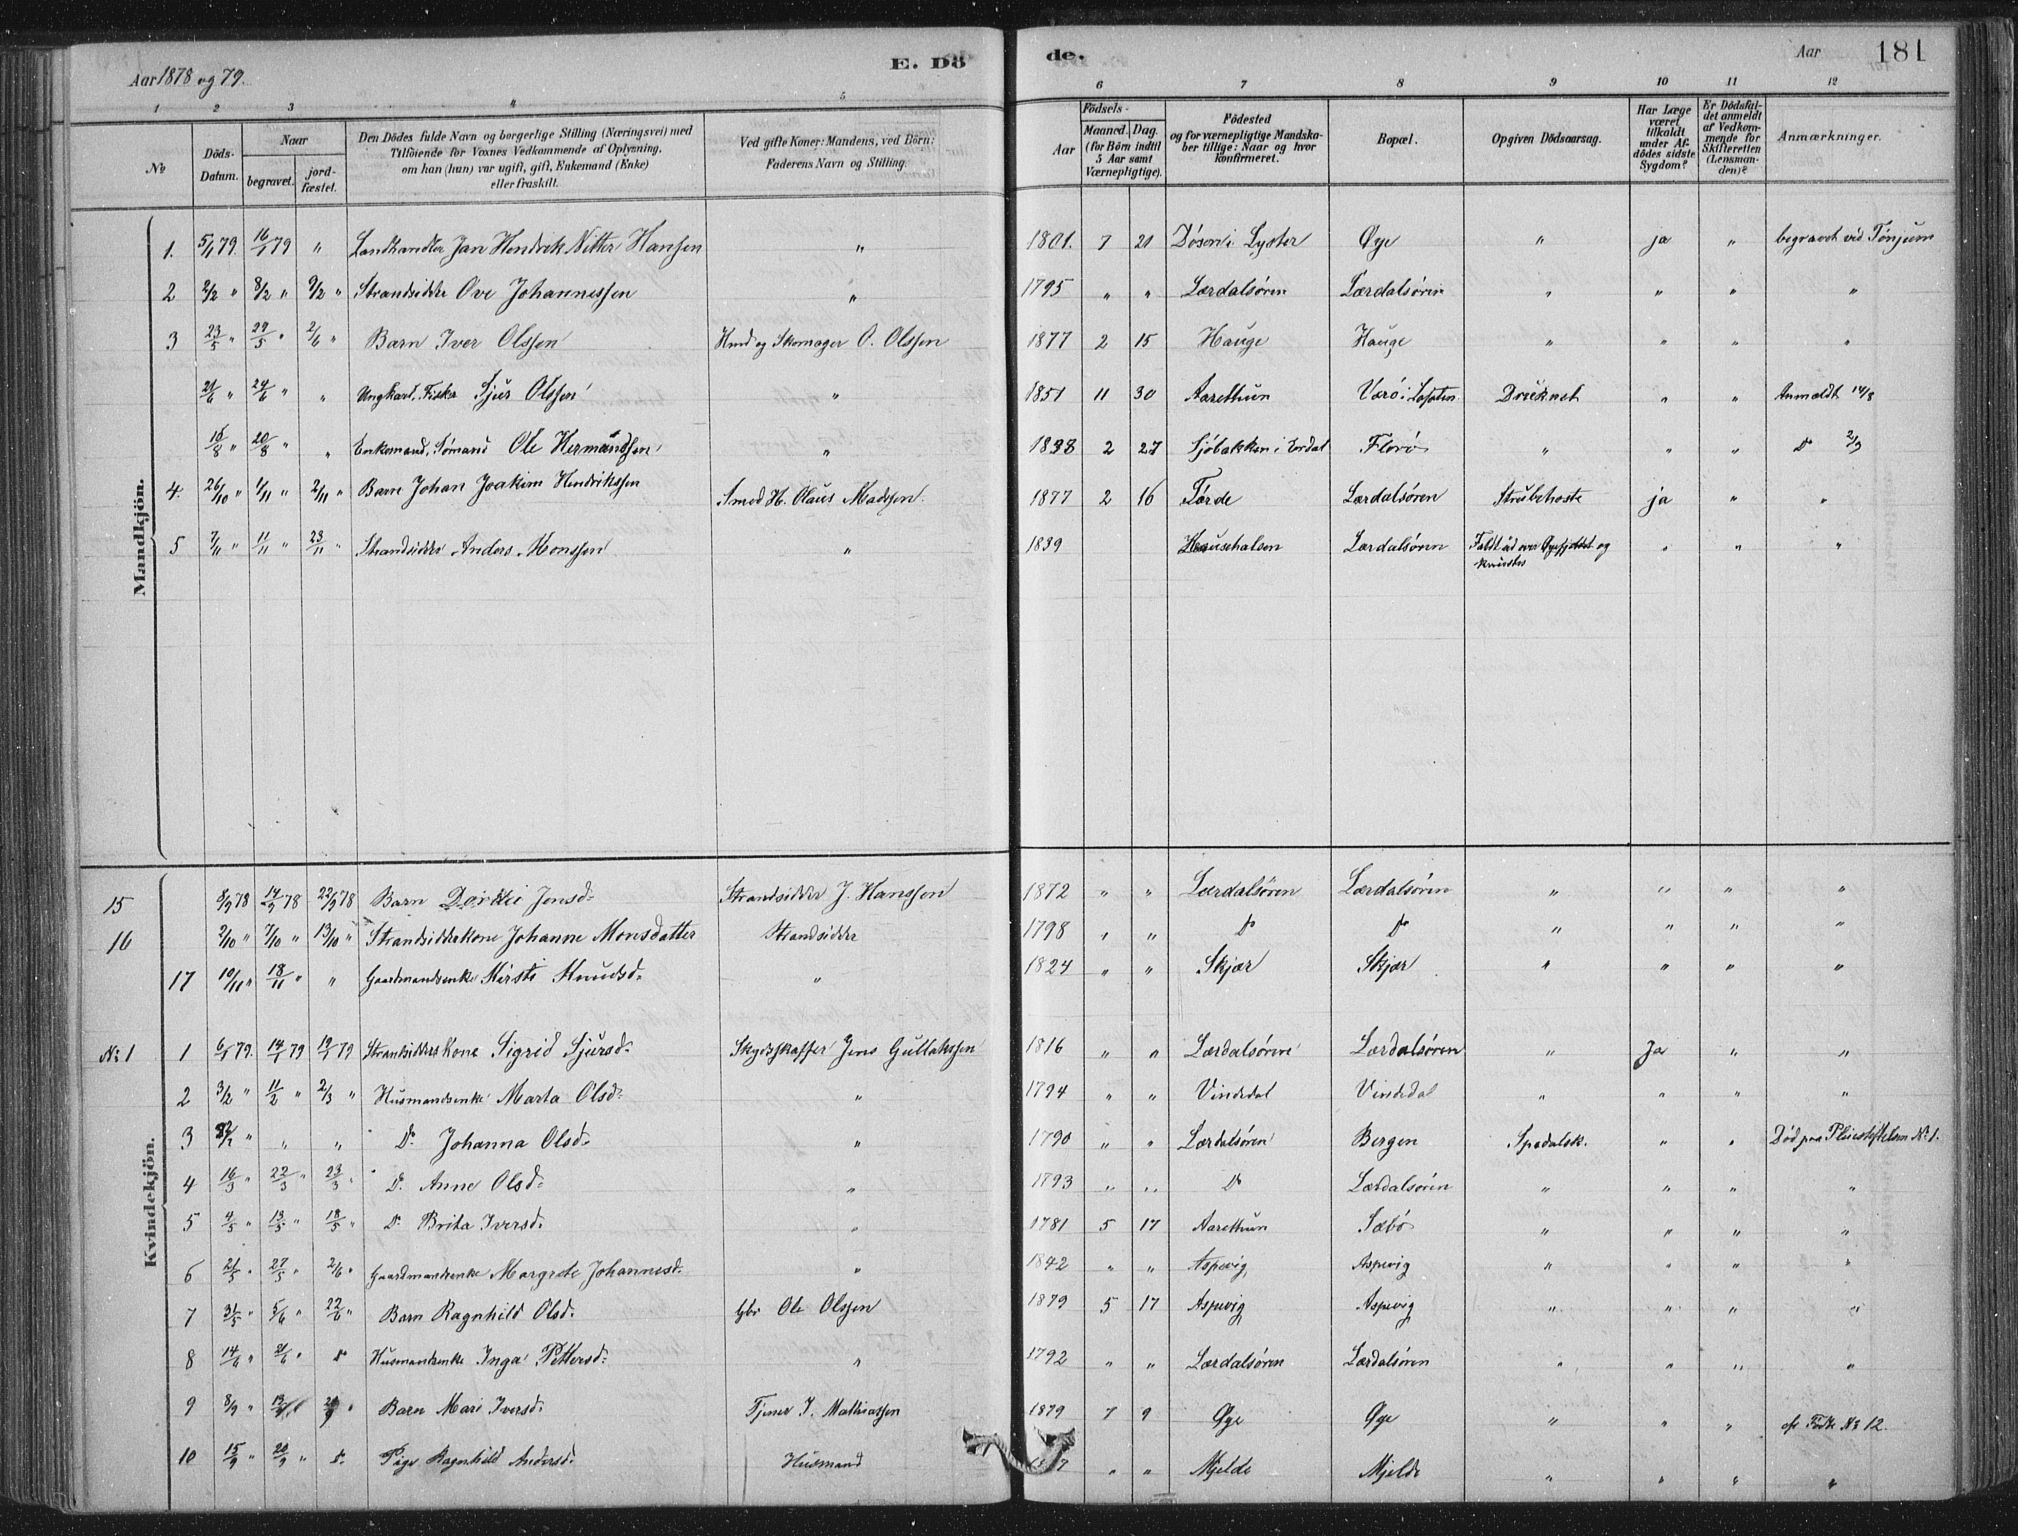 Aar 1878 og 79.
E. Dö
de.
Aar
181
1 2 3 4 5 6 7 8 9 10 11 12
No
Döds-Datum.
Naar
begravet.
jord-fæstet.
Den Dödes fulde Navn og borgerlige Stilling (Næringsvei) med
Tilföiende for Voxnes Vedkommende af Oplysning,
om han (hun) var ugift, gift, Enkemand (Enke)
eller fraskilt.
Ved gifte Koner: Mandens, ved Börn:
Faderens Navn og Stilling.
Födsels-
Aar
Maaned. Dag.
(for Börn indtil
5 Aar samt
Værnepligtige).
Födested
og for værnepligtige Mandska-
ber tillige: Naar og hvor
konfirmeret.
Bopæl.
Opgiven Dödsaarsag.
Har Læge
været
tilkaldt
under Af-
dödes sidste
Sygdom?
Er Dödsfal-
det anmeldt
af Vedkom-
mende for
Skifteretten
(Lensman-
den)?
Anmærkninger.
Mandkjön.
1. 5/1 79. 16/1 79 " Landhandler Jan Hendrik Nitter Hansen " 1801. 7 20 Døsen i Lyster Øye " ja " begravet ved Tønjum
2 2/2 " 8/2 " 9/2 " Strandsidder Ove Johannessen " 1795 " " Lærdalsøren Lærdalsøren " " " "
3 23/5 " 29/5 " 2/6 " Barn Iver Olssen Hmd og Skomager O. Olssen 1877 2 15 Hauge Hauge " " " "
21/6 " 24/6 " " Ungkarl, Fisker Sjur Olssen " 1851 11 30 Aarethun Værø i Lofoten Druknet " " Anmeldt 14/8
18/8 " 20/8 " " Enkemand, Sømand Ole Hermandsen " 1838 2 27 Sjøbakken i Erdal Florø " " " Do 2/9
4. 26/10 " 1/11 " 2/11 " Barn Johan Joakim Hendrikssen Smed H. Olaus Madssen. 1877 2 16 Førde Lærdalsøren Strubehoste ja " "
5 7/11 " 11/11 " 23/11 " Strandsidder Anders Monssen " 1839 Lærdalsøren Faldt ud over og kvæstes " " "
Kvindekjön.
15 8/9 78 14/9 78 22/9 78 Barn Dorthe Jensd: Strandsidder J. Hanssen 1872 " " Lærdalsøren Lærdalsøren " " " "
16 2/10 " 7/10 " 13/10 " Strandsidderkone Johanne Monsdatter Strandsidder 1798 " " Do Do " " " "
17 10/11 " 18/11 " " Gaardmandsenke Kirsti Knudsd: " 1824 " " Skjær Skjær " " " "
No 1 1 6/1 79. 14/1 79 19/1 79 Strandsidderskone Sigrid Sjursd: Skydsskaffer Jens Gullakssen 1816 " " Lærdalsøren Lærdalsøren " Ja " "
2 3/2 " 11/2 " 2/3 " Husmandsenke Marta Olsd: " 1794 " " Vindedal Vindedal " " " "
3 " " " Do Johanna Olsd: " 1790 " " Lærdalsøren Bergen Spedalsk. " " Død paa Pleiestiftelsen No 1.
4 16/3 " 22/3 " 23/3 " Do Anne Olsd: " 1793 " " Do Lærdalsøren " " " "
5 4/5 " 13/5 " 18/5 " Do Brita Iversd: " 1781 5 17 Aarethun Sæbø " " " "
6 21/5 " 27/5 " 2/6 " Gaardmandsenke Margrete Johannesd: " 1842 " " Aspevig Aspevig " " " "
7 31/5 " 5/6 " 22/6 " Barn Ragnhild Olsd: Gbr Ole Olssen 1879 5 17 Aspevig Aspevig " " " "
8 14/6 " 21/6 " Do Husmandsenke Inga Pettersd: " 1792 " " Lærdalsøren Lærdalsøren " " " "
9 8/9 " 13/9 " Barn Mari Iversd: Tjener I. Mathiassen 1879 7 9 Øye Øye " " " cfr Fødte No 12.
10 15/9 " 20/9 " Do Pige Ragnhild Andersd: Husmand " " Mjelde Mjelde " " " "